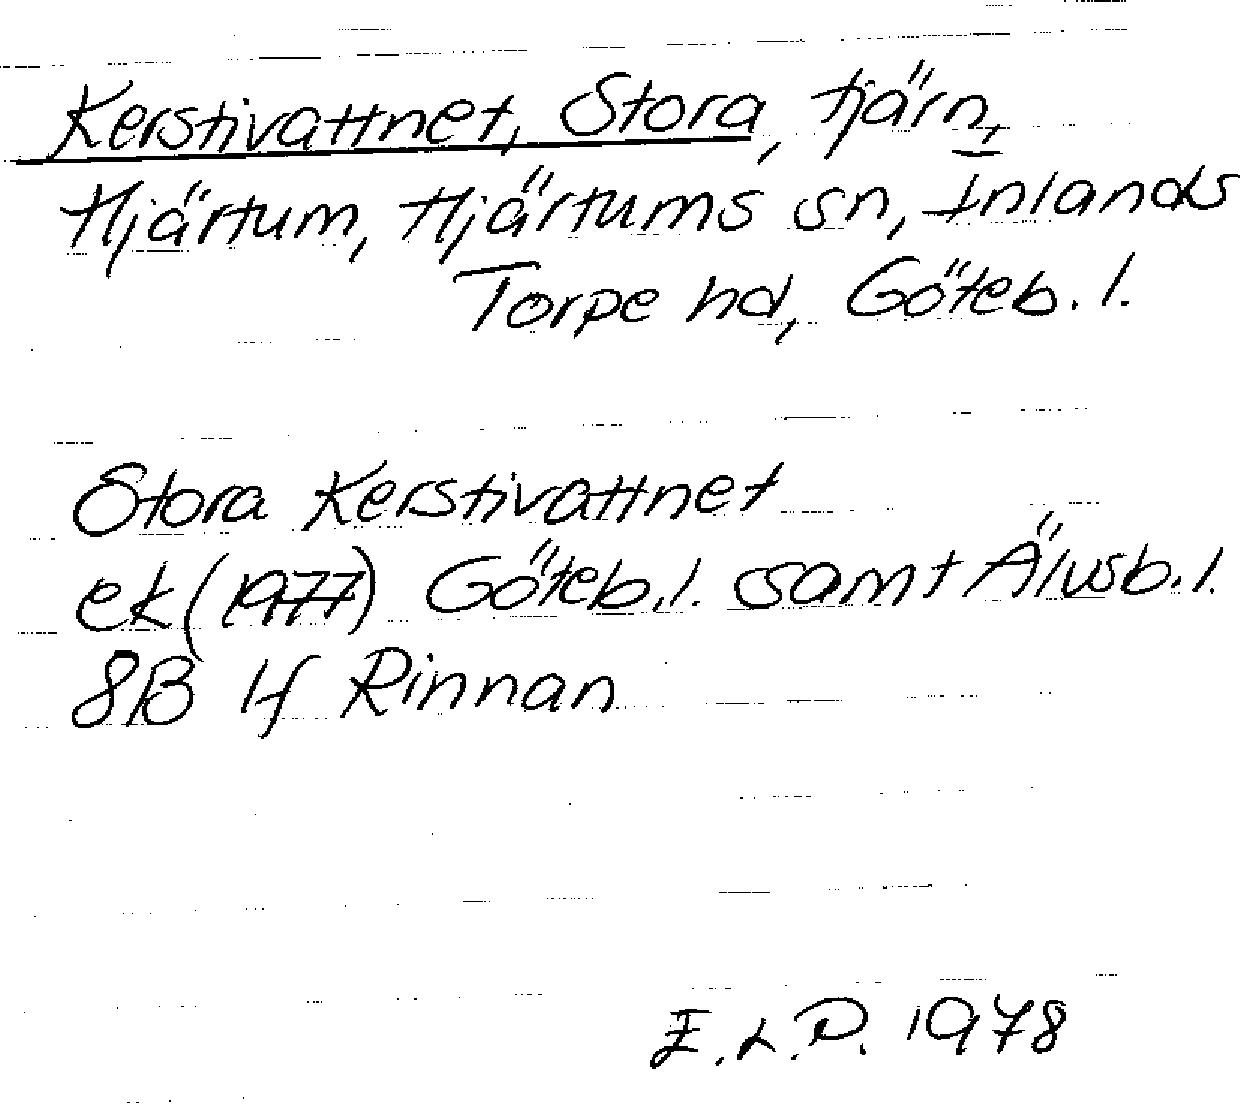 Kerstivattnet, Stora, tjärn,
Hjärtum, Hjärtums sn, Inlands
Torpe hd, Göteb. l.
Stora Kerstivattnet
ek (1977) Göteb. l. samt Älvsb. l.
8B 1f Rinnan
E.L.P. 1978